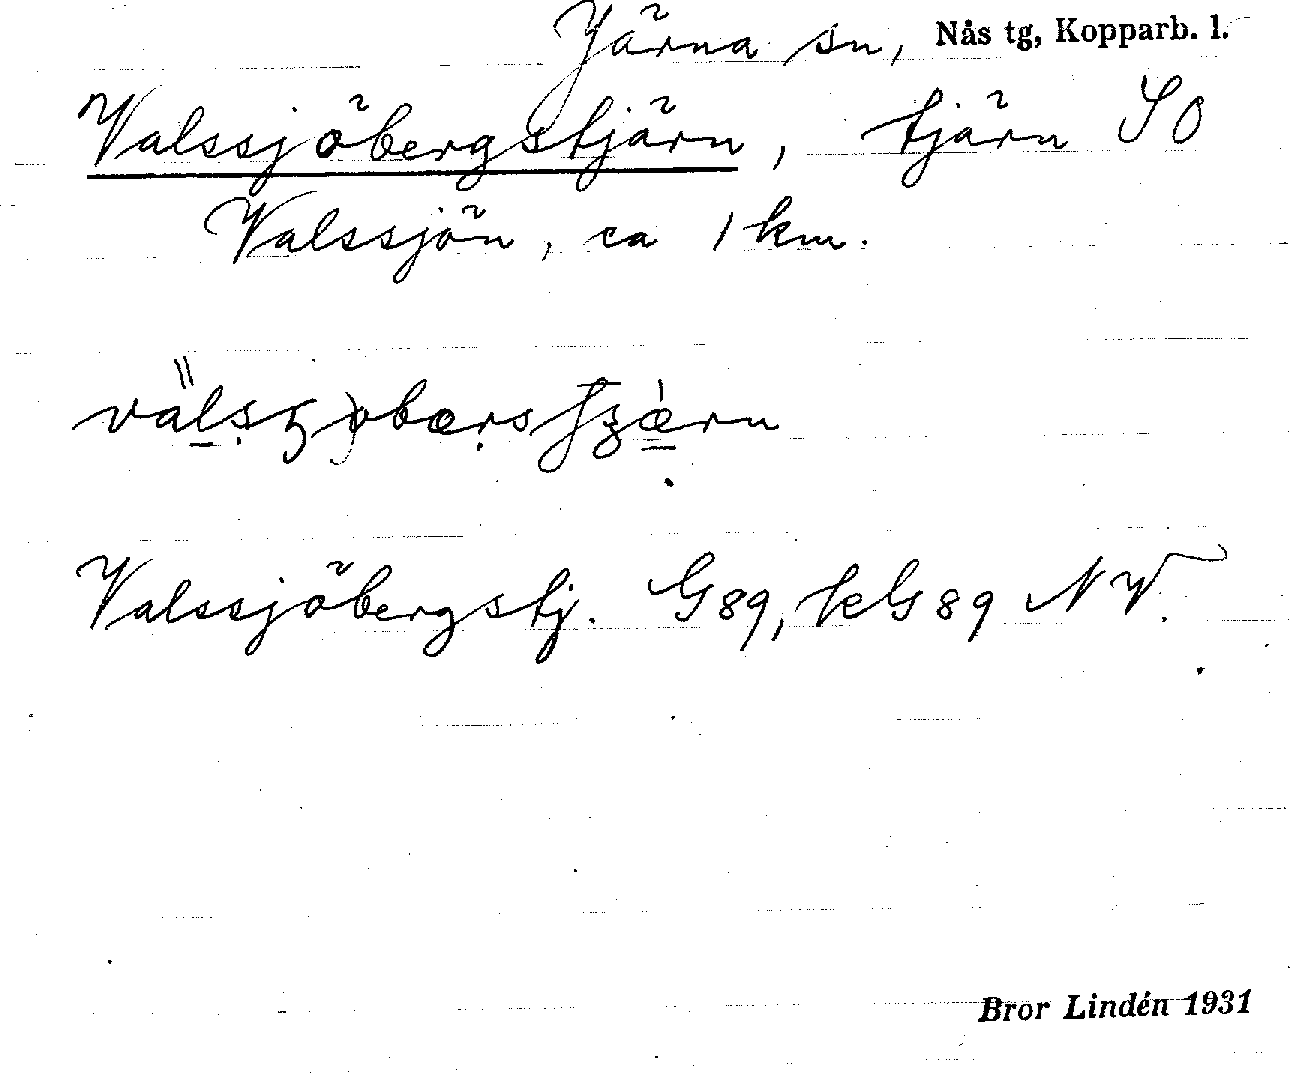 Järna sn, Nås tg, Kopparb. l.
Valssjöbergstjärn, tjärn SO
Valssjön, ca 1 km.
Valssjöbergstj. G89, kG89 NV.
Bror Lindén 1931